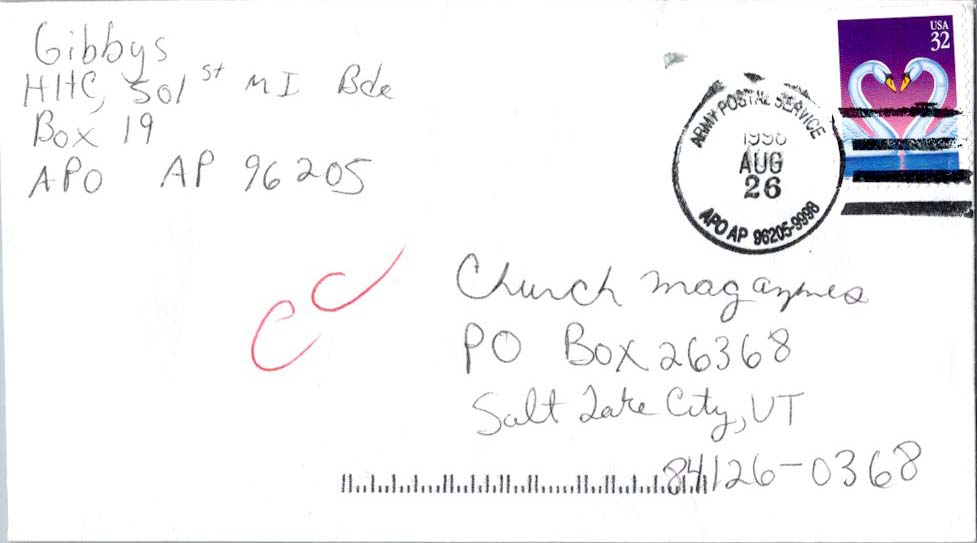 Gibbys
HHC, 501st MI Bde
Box 19
APO AP 96205
USA
32
ARMY POSTAL SERVICE
1998
AUG
26
APO AP 96205-9998
CC
Church Magazines
PO Box 26368
Salt Lake City, UT
84126-0368